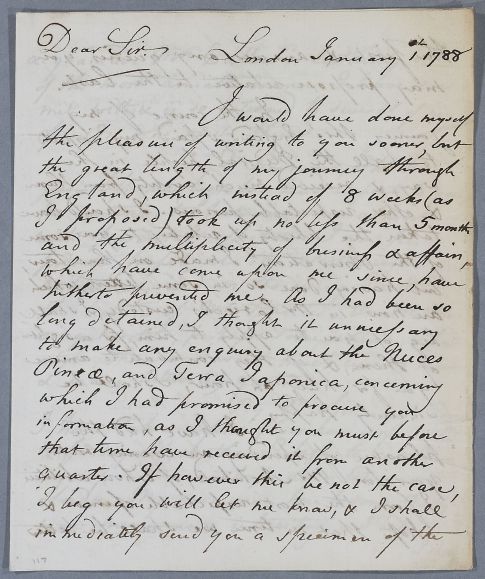 Dear Sir. London January 1st 1788
I would have done myself
the pleasure of writing to you sooner, but
the great length of my journey through
England, which instead of 8 weeks (as
I proposed) took up no less than 5 months
and the multiplicity of business & affairs,
which have come upon me since, have
hitherto prevented me. As I had been so
long detained, I thought it unnecessary
to make any enquiry about the Nuces
Pineæ, and Terra Japonica, concerning
which I had promised to procure you
information, as I thought you must before
that time have received it from another
quarter. If however this be not the case,
I beg you will let me know, & I shall
immediately send you a specimen of the
117